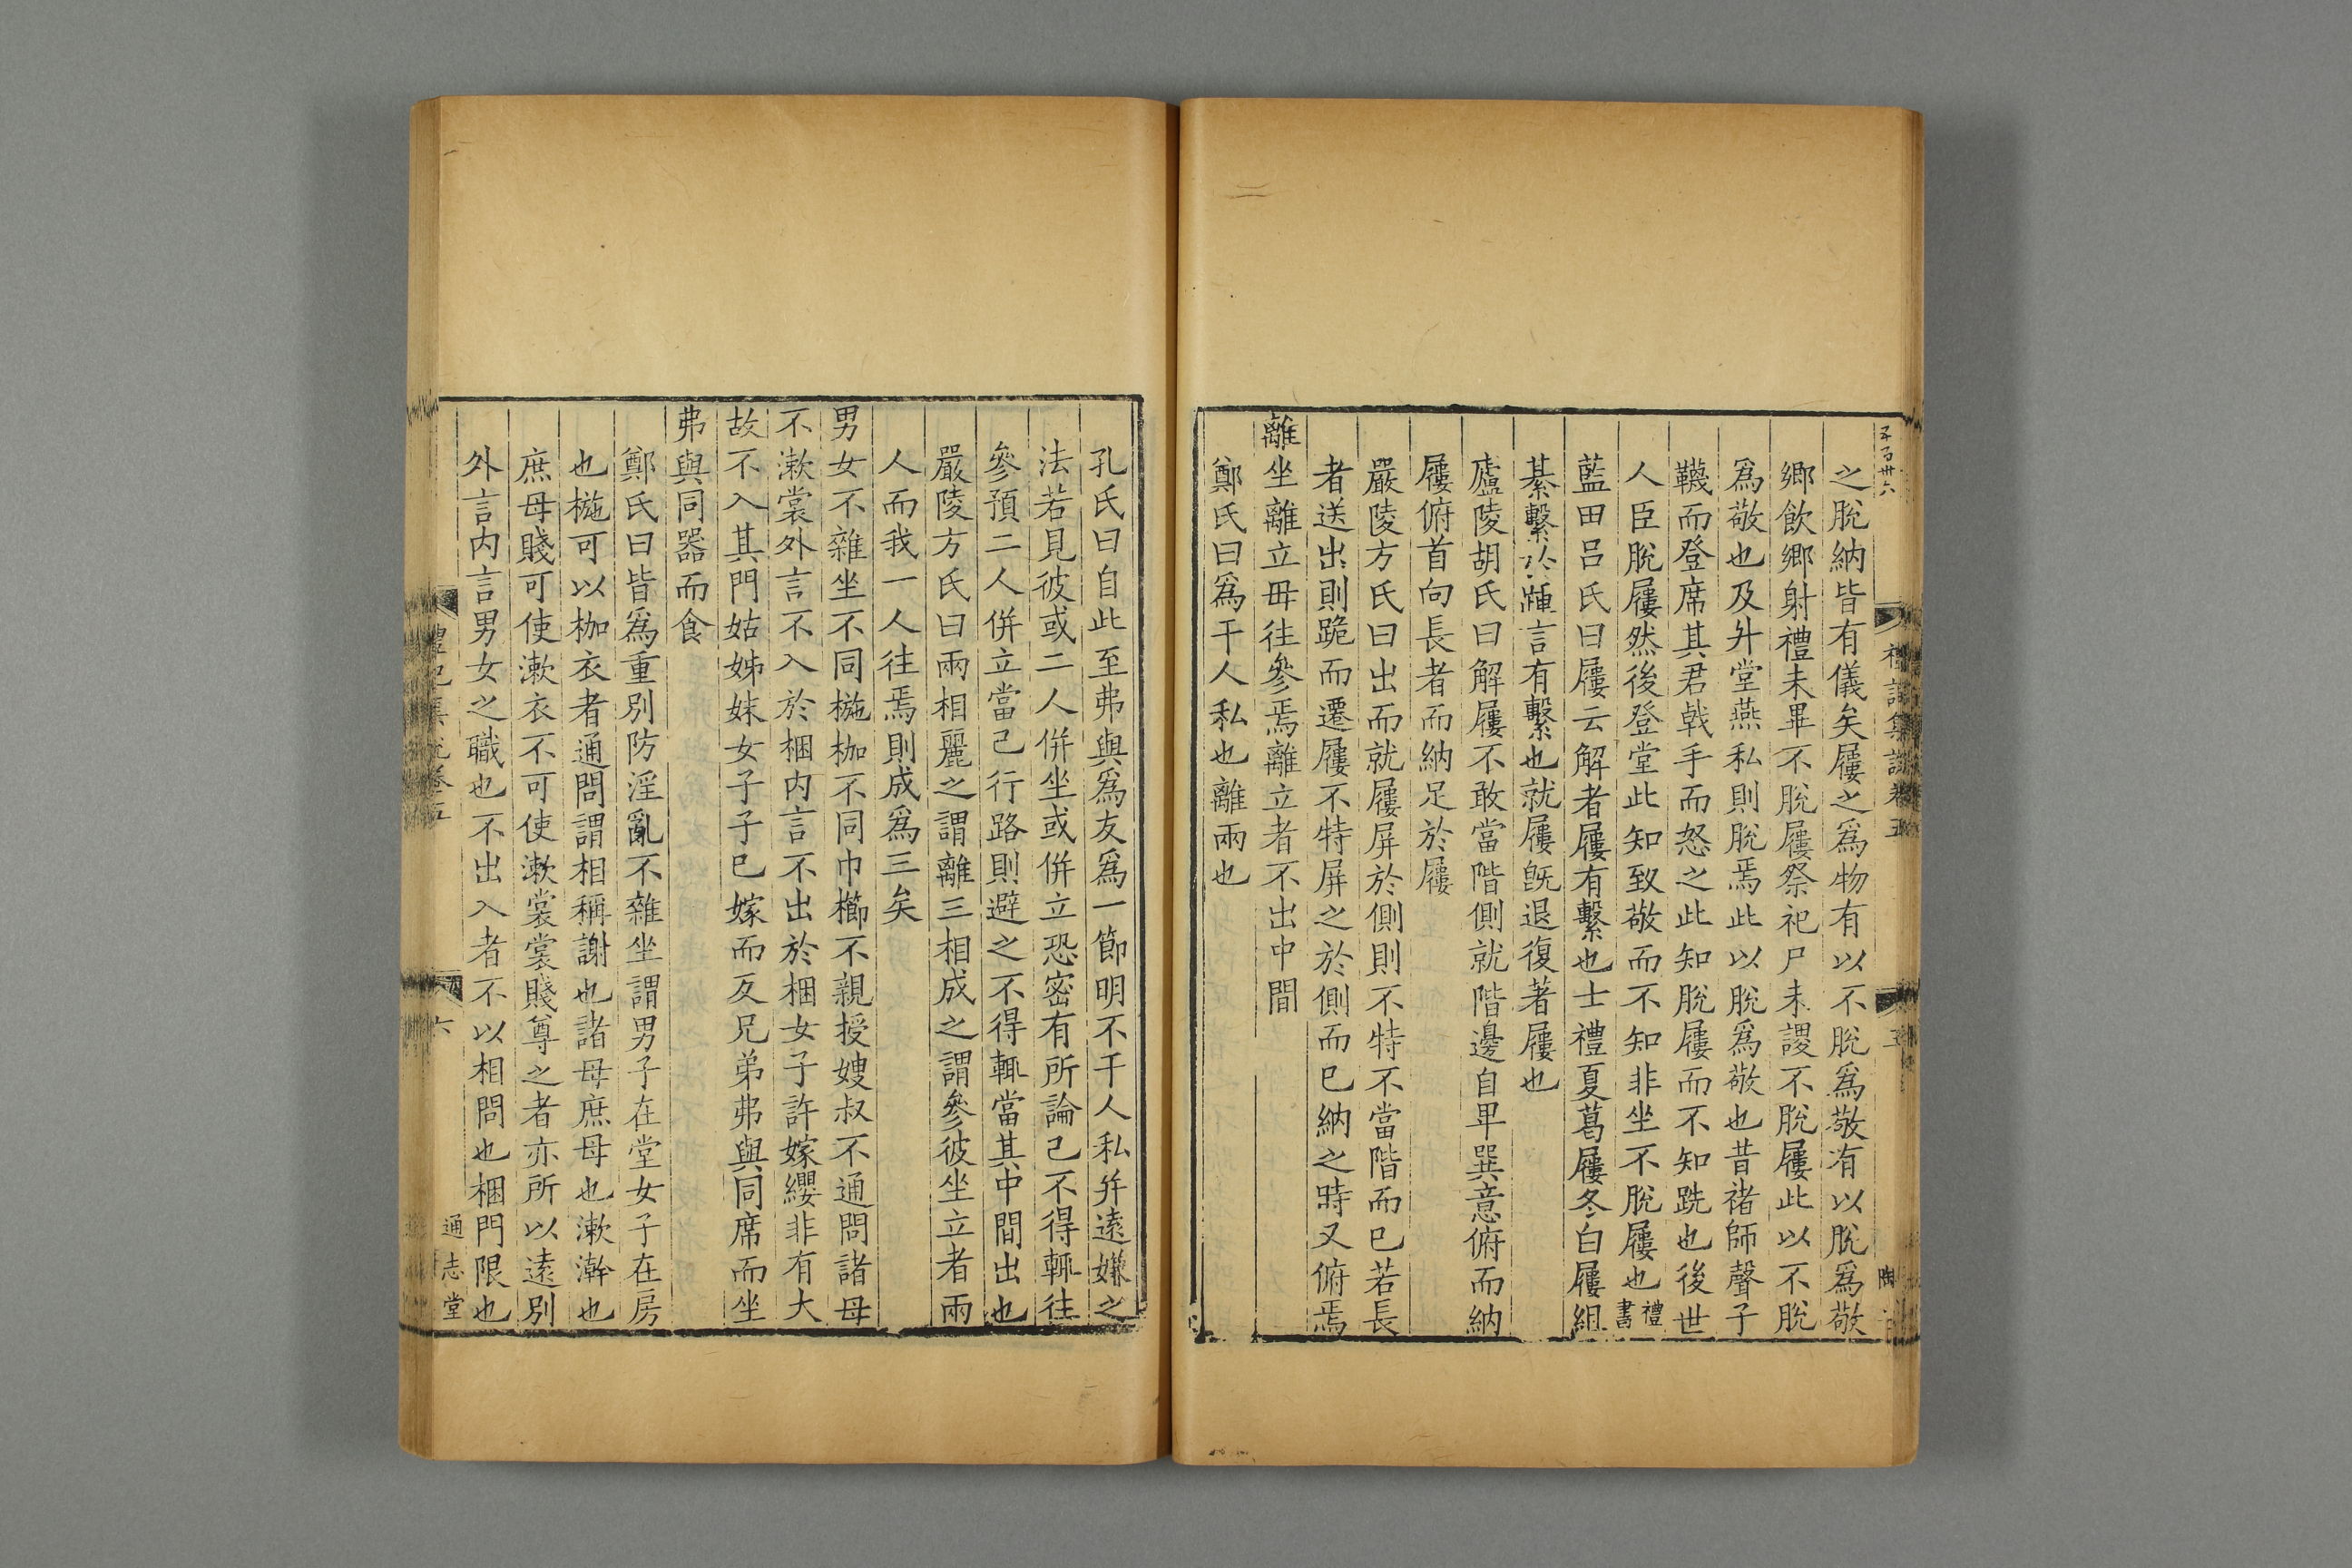 五百卅六
之脫納皆有儀矣屨之為物有以不脫為敬有以脫為敬
鄉飲鄉射禮未畢不脫屨祭祀尸未謖不脫屨此以不脫
為敬也及升堂燕私則脫焉此以脫為敬也昔褚師聲子
韈而登席其君戟手而怒之此知脫屨而不知跣也後世
人臣脫屨然後登堂此知致敬而不知非坐不脫屨也禮書
藍田呂氏曰屨云解者屨有繫也士禮夏葛屨冬白屨組
綦繫於踵言有繫也就屨旣退復著屨也
廬陵胡氏曰解屨不敢當階側就階邊自卑巽意俯而納
屨俯首向長者而納足於屨
嚴陵方氏曰出而就屨屏於側則不特不當階而已若長
者送出則跪而遷屨不特屏之於側而已納之時又俯焉
離坐離立毋往參焉離立者不出中間
鄭氏曰為干人私也離兩也
孔氏曰自此至弗與為友為一節明不干人私并遠嫌之
法若見彼或二人併坐或併立恐密有所論己不得輒往
參預二人併立當己行路則避之不得輒當其中間出也
嚴陵方氏曰兩相麗之謂離三相成之謂參彼坐立者兩
人而我一人往焉則成為三矣
男女不雜坐不同椸枷不同巾櫛不親授嫂叔不通問諸母
不漱裳外言不入於梱內言不出於梱女子許嫁纓非有大
故不入其門姑姊妹女子子已嫁而反兄弟弗與同席而坐
弗與同器而食
鄭氏曰皆為重別防淫亂不雜坐謂男子在堂女子在房
也椸可以枷衣者通問謂相稱謝也諸母庶母也漱澣也
庶母賤可使漱衣不可使漱裳裳賤尊之者亦所以遠別
外言內言男女之職也不出入者不以相問也梱門限也
禮記集說卷五
六
通志堂